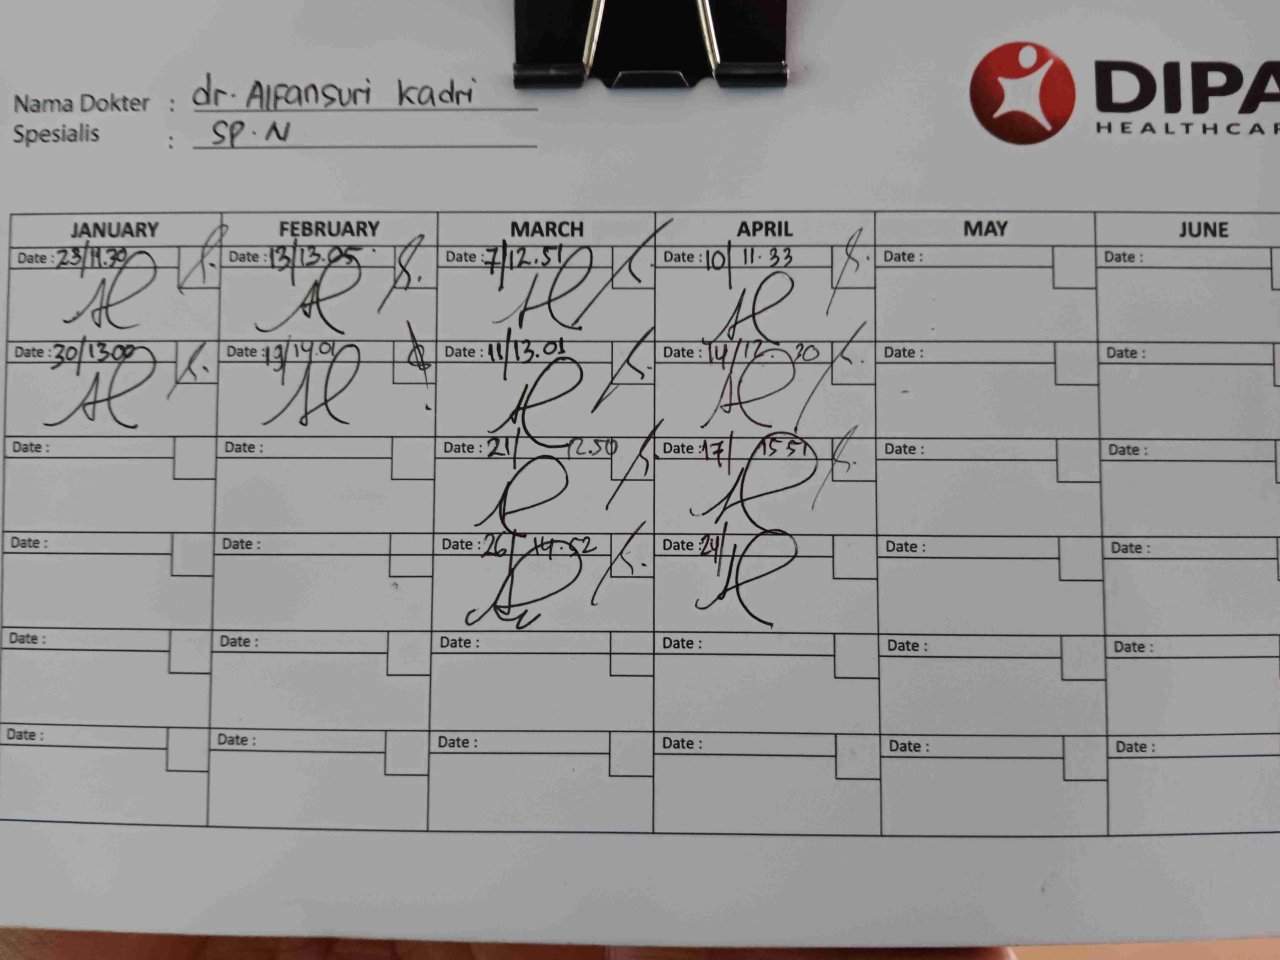 Nama Dokter : dr. Alfansuri Kadri
Spesialis : SP.N
DIPA
HEALTHCAR
JANUARY FEBRUARY MARCH APRIL MAY JUNE
Date : 23/11.30 Date : 13/13.05 Date : 7/12.51 Date : 10/ 11.33 Date : Date :
Date : 30/13.00 Date : 19/14.01 Date : 11/13.01 Date : 14/12.30 Date : Date :
Date : Date : Date : 21/ 12.50 Date : 17/ 15 51 Date : Date :
Date : Date : Date : 26/ 14.52 Date : 24/ Date : Date :
Date : Date : Date : Date : Date : Date :
Date : Date : Date : Date : Date : Date :